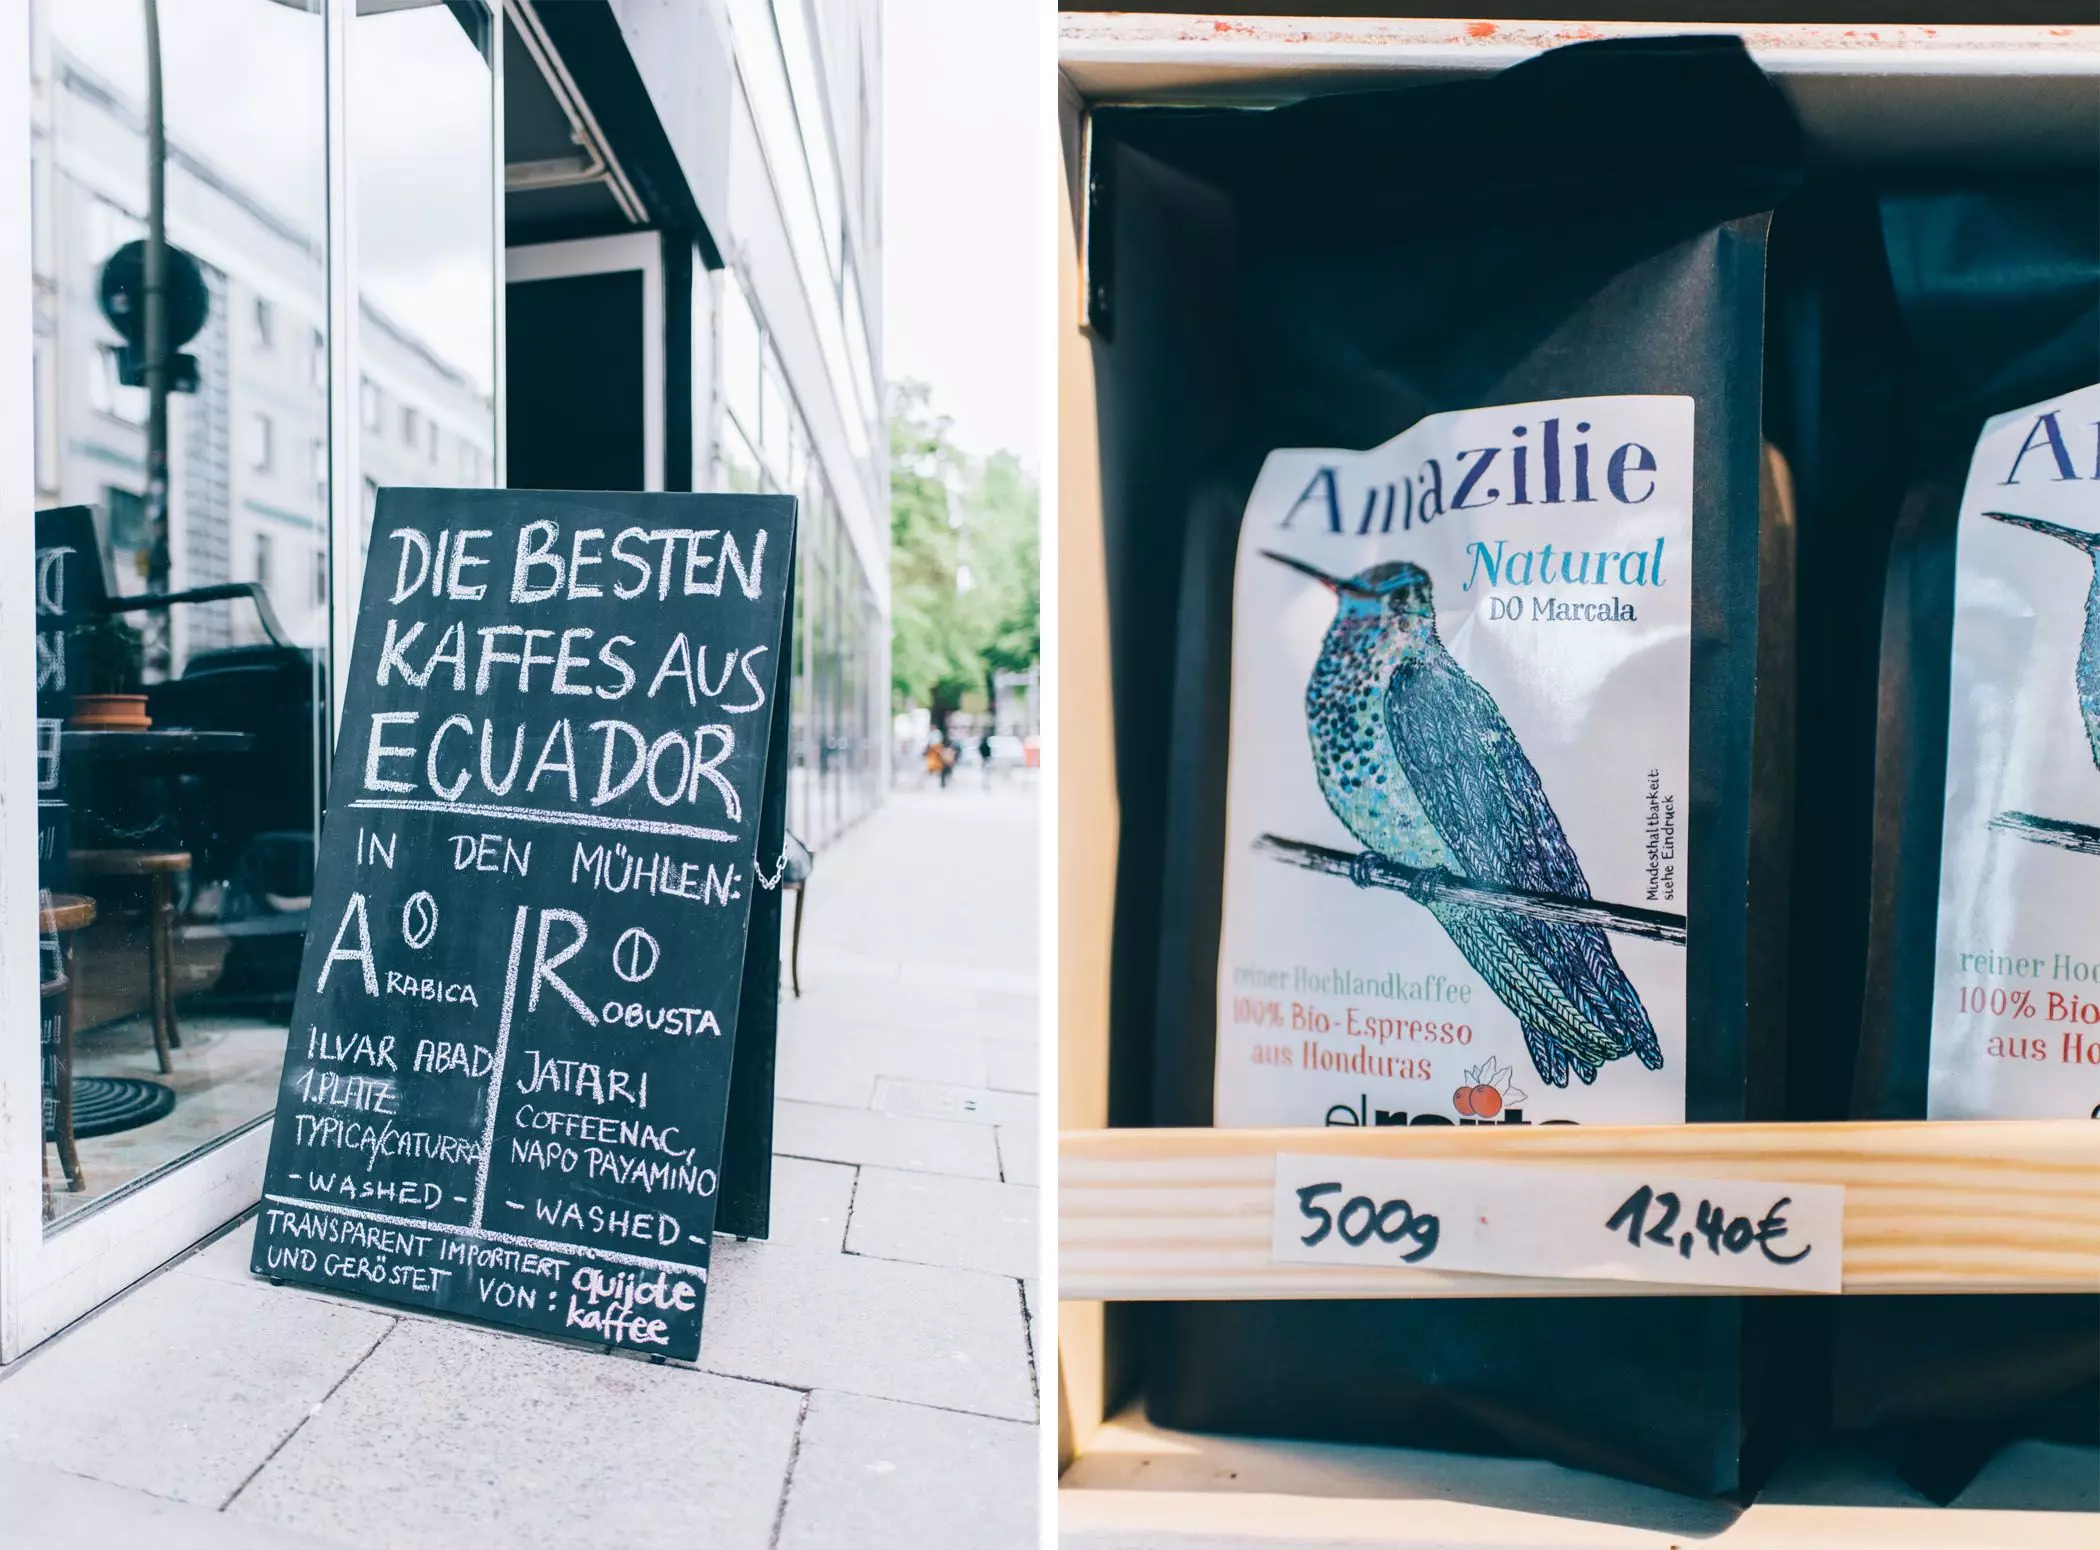 DIE BESTEN
KAFFES AUS
ECUADOR
IN DEN MÜHLEN:
ARABICA
ILVAR ABAD
1. PLATZ
TYPICA/CATURRA
- WASHED -
ROBUSTA
JATARI
COFFEENAC,
NAPO PAYAMINO
- WASHED -
TRANSPARENT IMPORTIERT
UND GERÖSTET VON:
quijote
kaffee
Amazilie
Natural
DO Marcala
Mindesthaltbarkeit:
siehe Eindruck
reiner Hochlandkaffee
100% Bio-Espresso
aus Honduras
500g 12,40€
reiner Hoc
100% Bio
aus Ho